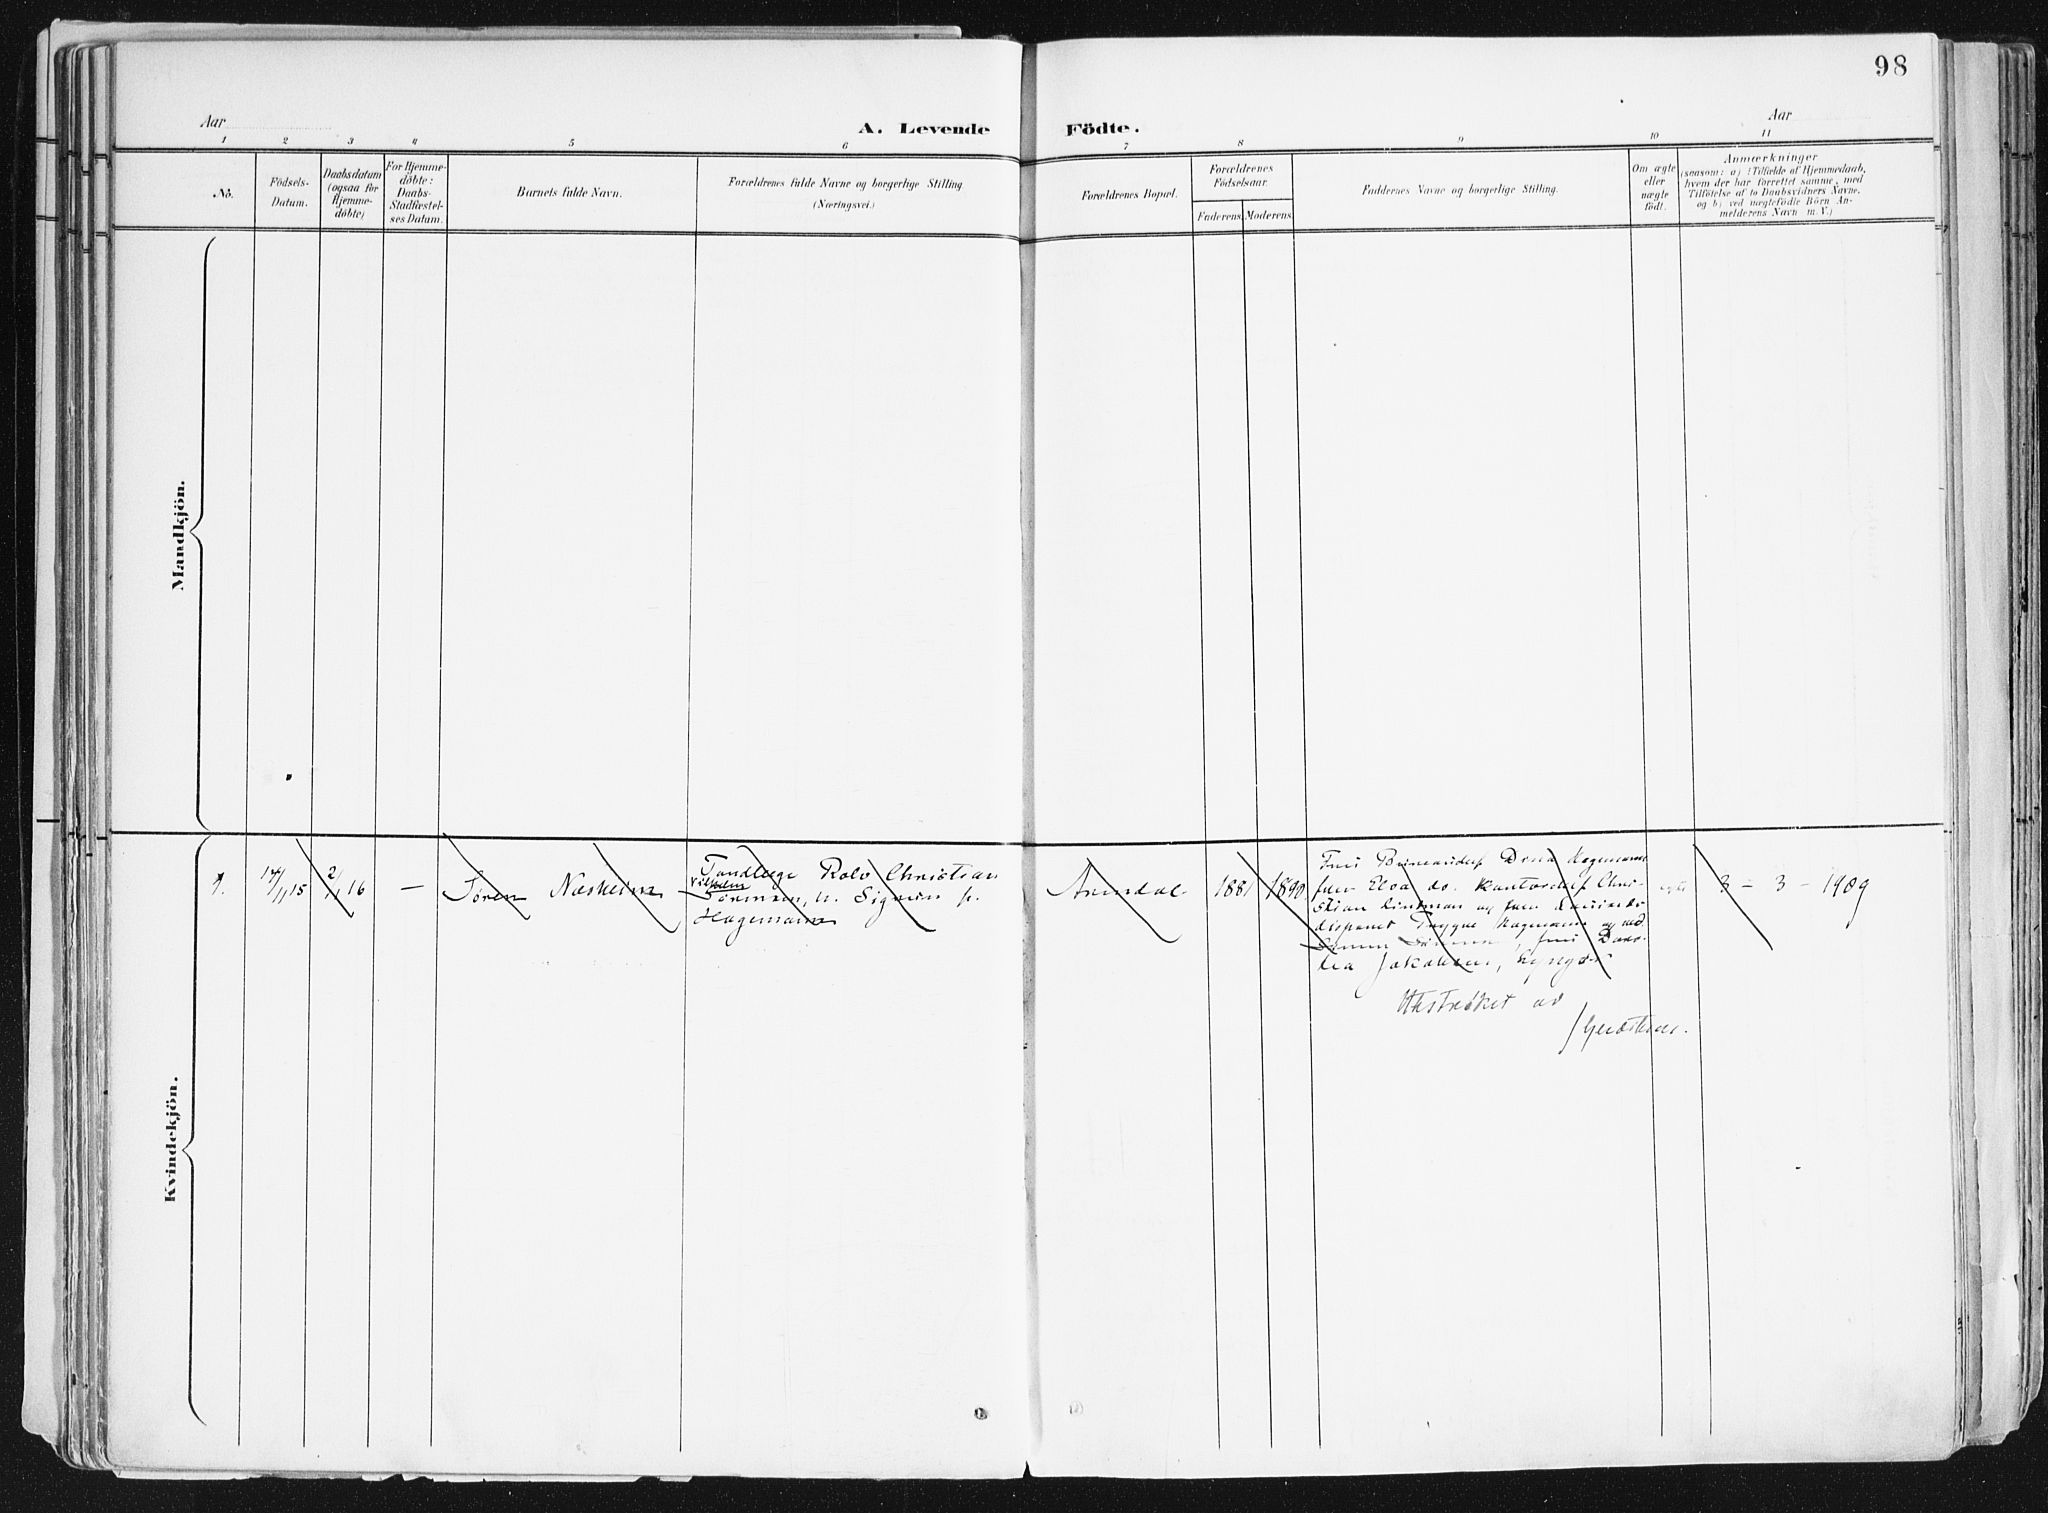 98
Aar
A. Levende
Födte.
Aar
1 2 3 4 5 6 7 8 9 10 11
No.
Födsels-
Datum.
Daabsdatum
(ogsaa for
Hjemme-
döbte)
For Hjemme-
döbte:
Daabs-
Stadfæstel-
ses Datum.
Barnets fulde Navn.
Forældrenes fulde Navne og borgerlige Stilling
(Næringsvei.)
Forældrenes Bopæl.
Forældrenes
Födselsaar.
Faderens.
Moderens.
Faddernes Navne og borgerlige Stilling.
Om ægte
eller
uægte
födt.
Anmærkninger
(saasom: a) i Tilfælde af Hjemmedaab,
hvem der har forrettet samme, med
Tilföielse af to Daabsvidners Navne.
og b) ved uægtefödte Börn An-
melderens Navn m. V.)
Mandkjön.
Kvindekjön.
14/11 15
2/1 16
—
Sören Næsheim
Tandlæge Rolv Christian
Vilhelm
Sörensen, u. Sigrun f.
Hagemann
Arendal
1881
1890
Hagemann
frk. Elsa do. Kontorchef Chri-
stian
disponent Trygve Hagemann og
Jakobsen, Lyngör
3 - 3 - 1909
Utstrøket av